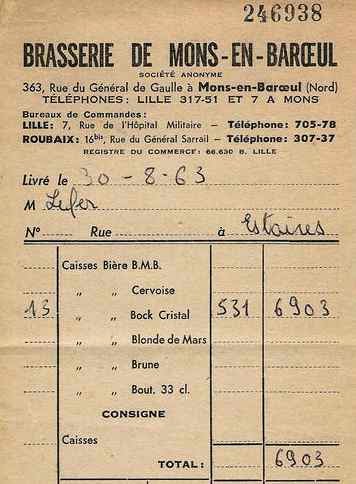 246938
BRASSERIE DE MONS-EN-BARŒUL
SOCIÉTÉ ANONYME
363, Rue du Général de Gaulle à Mons-en-Barœul (Nord)
TÉLÉPHONES: LILLE 317-51 ET 7 A MONS
Bureaux de Commandes:
LILLE: 7, Rue de l'Hôpital Militaire — Téléphone: 705-78
ROUBAIX: 16bis, Rue du Général Sarrail — Téléphone: 307-37
REGISTRE DU COMMERCE: 66.630 B. LILLE
Livré le 30-8-63
M
N° Rue à Estaires
Caisses Bière B.M.B.
" " Cervoise
13 " " Bock Cristal 531 6903
" " Blonde de Mars
" " Brune
" " Bout. 33 cl.
CONSIGNE
Caisses
TOTAL: 6903